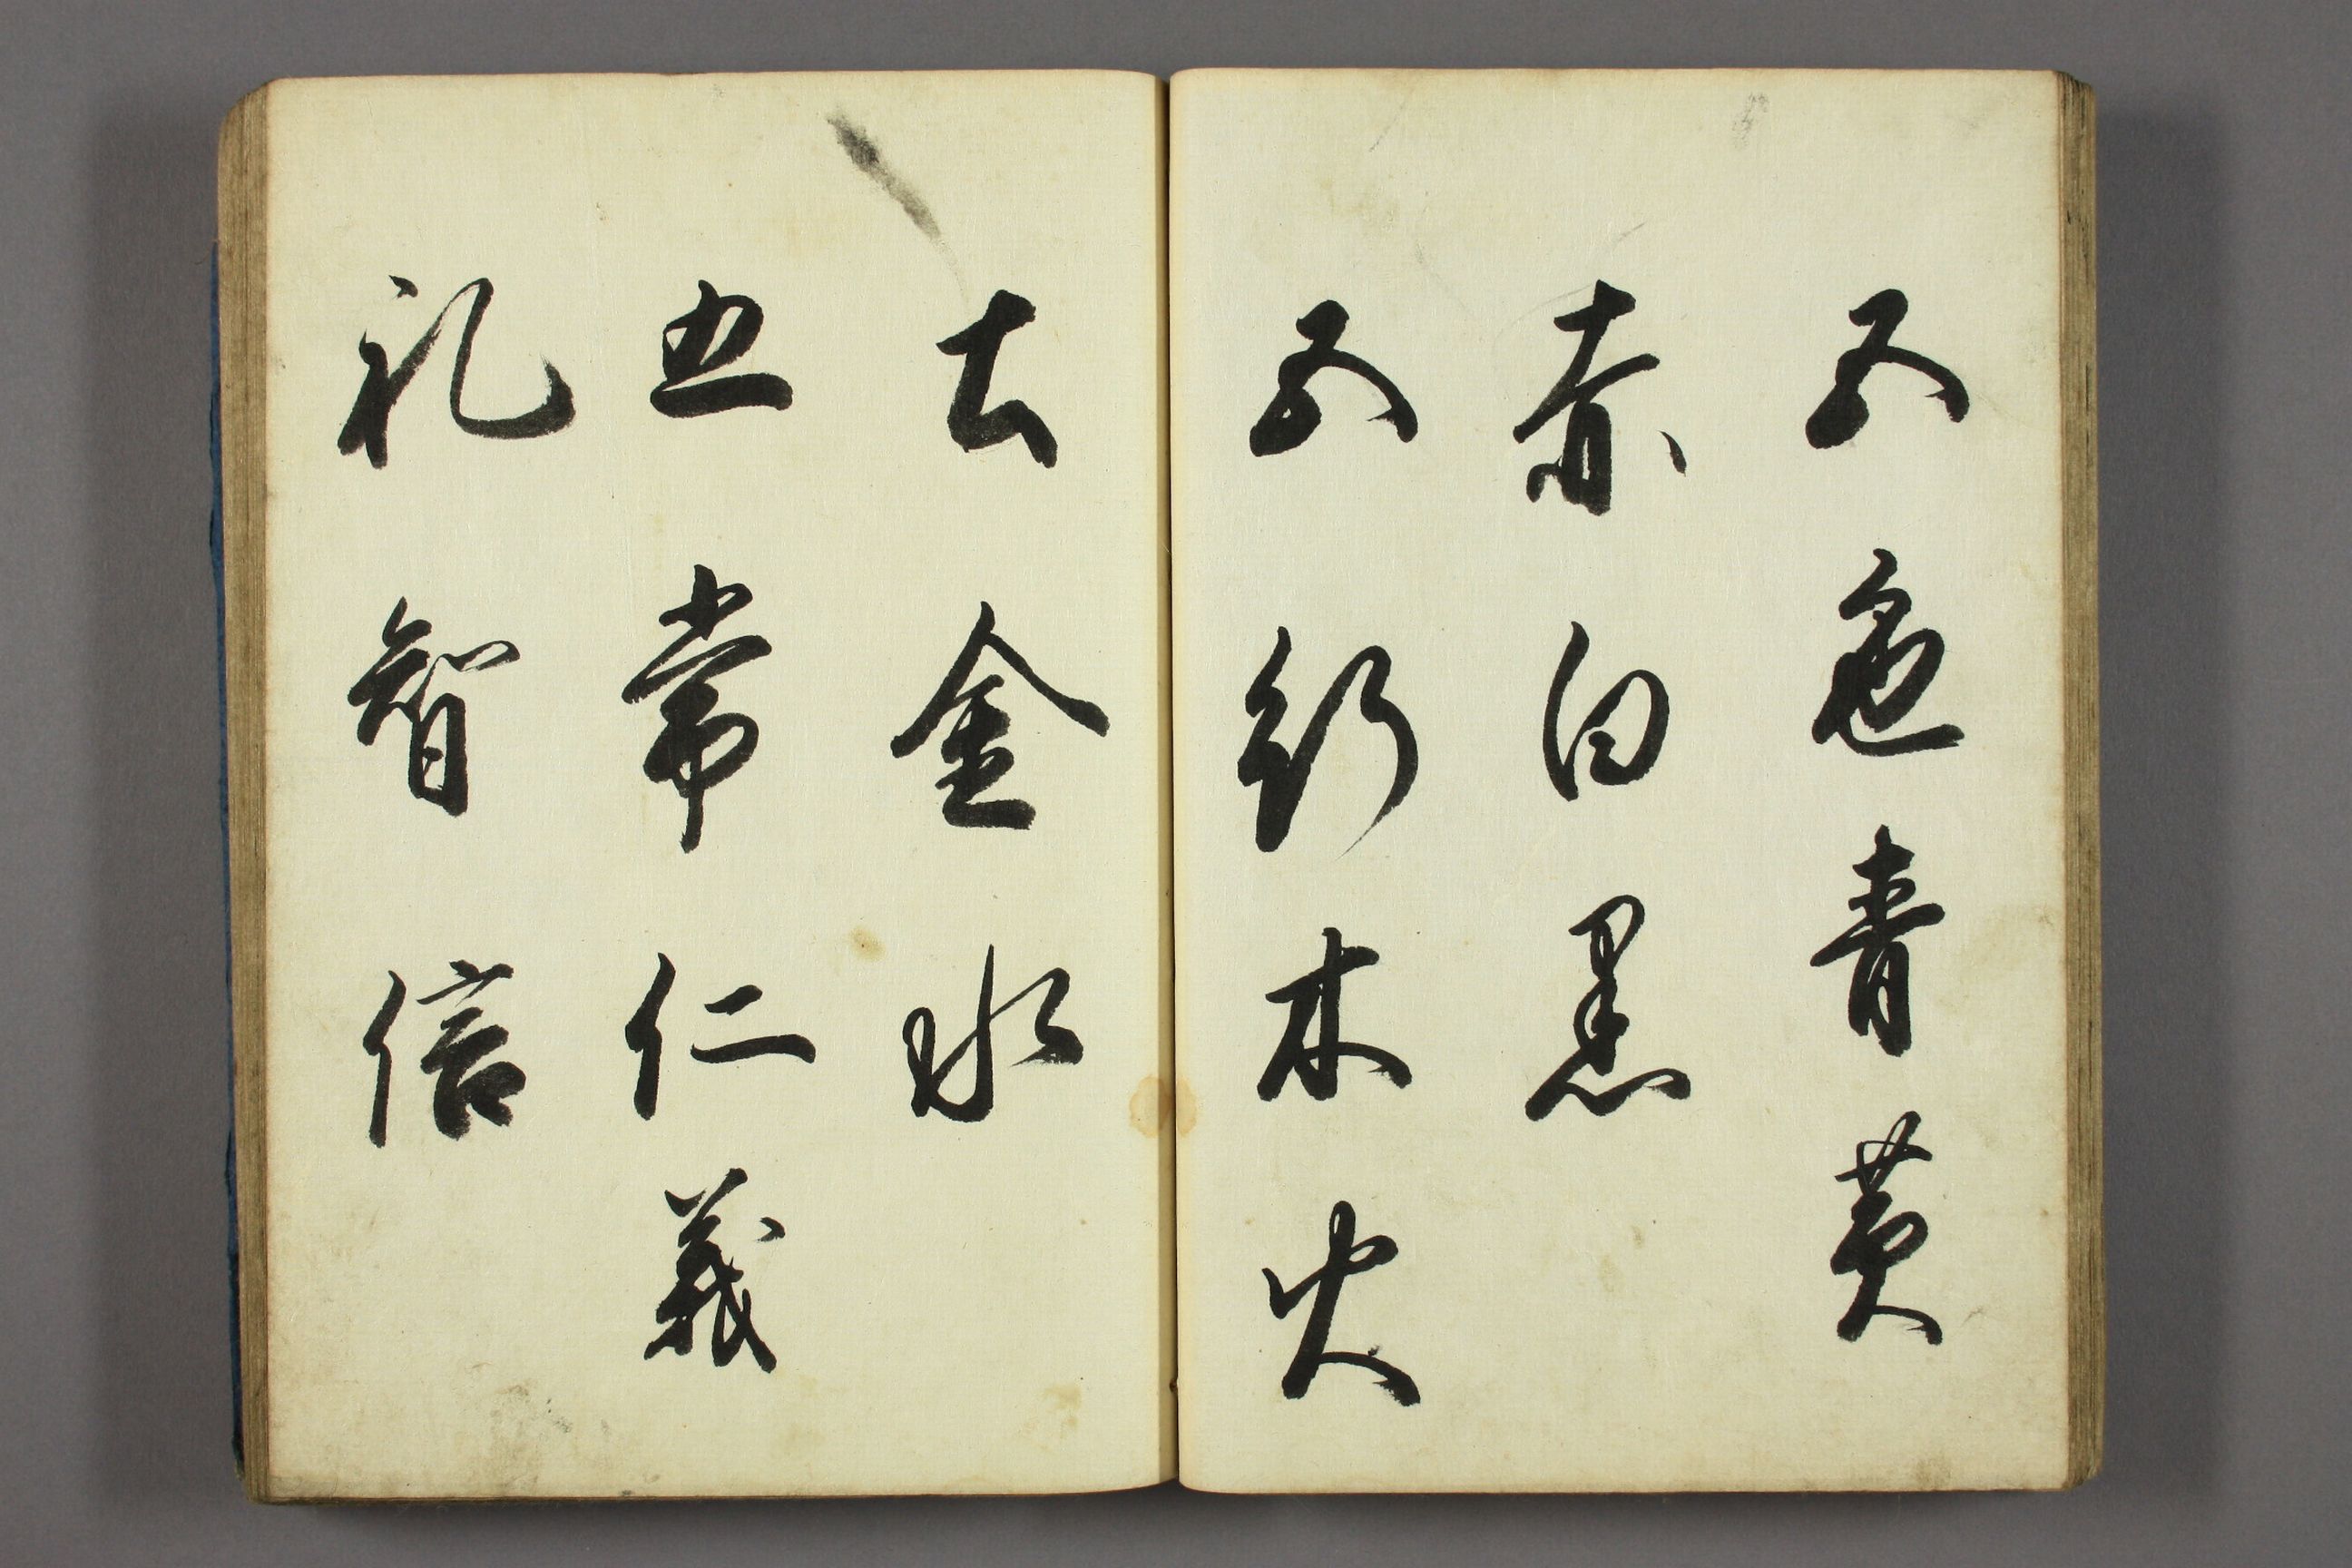 五色青黄
赤白黒
五行木火
土金水
五常仁義
礼智信